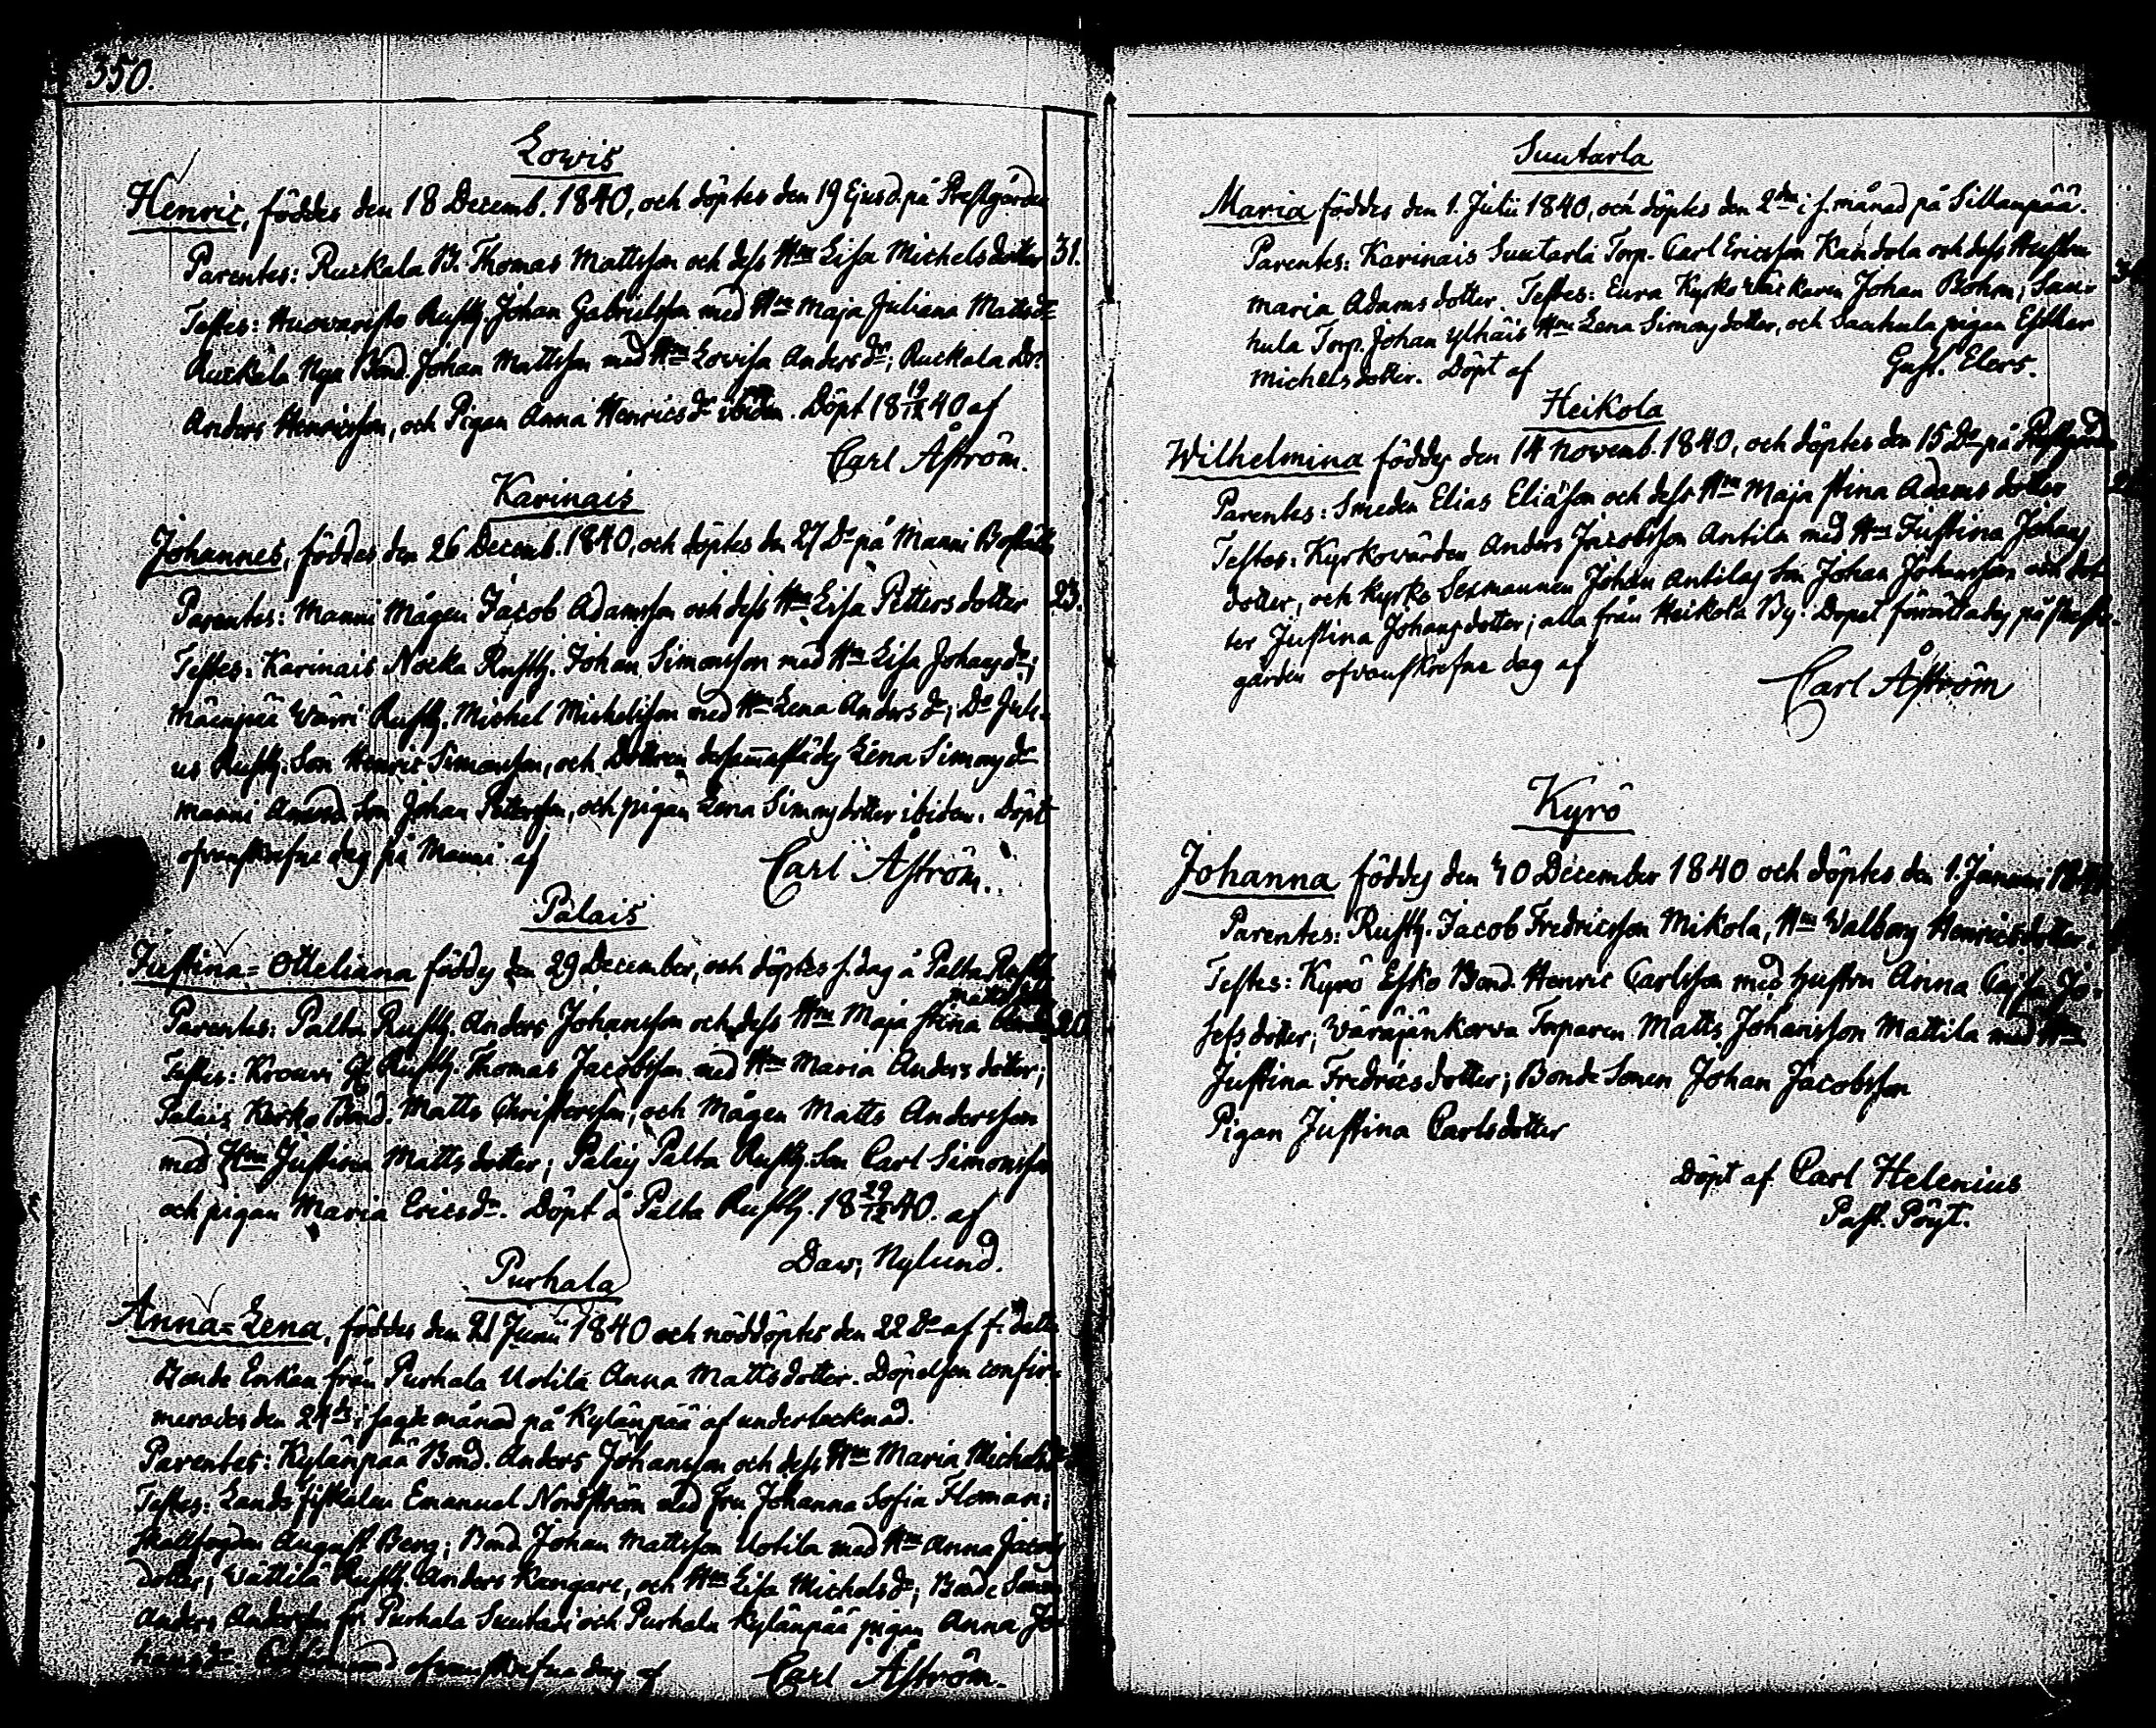 350.
Lowis
Henric, föddes den 18 Decemb. 1840, och döptes den 19 Ejusd. på Prestgården
Parentes: Ruckala B. Thomas Mattsson och dess Hru Lisa Michelsdotter 31.
Testes: Rusth. Johan Gabrielsson med Hru Maja Juliana Mattsdr
Ruckala Nya Bond. Johan Mattsson med Hru Lovisa Andersdr; Ruckala
Anders Henricsson, och Pigan Anna Henricsdr ibidem. Döpt 18 19/12 40 af
Carl Åström.
Karinais
Johannes, föddes den 26 Decemb. 1840, och döptes den 27 Do på Manni Boställe
Parentes: Manni Mågen Jacob Adamsson och dess Hru Lisa Pettersdotter 23.
Testes: Karinais Nocka Rusth. Johan Simonsson med Hru Lisa Johansdr;
Mäenpää Wärri Rusth. Michel Michelsson med Hru Lena Andersdr; Do
Rusth. Son Henric Simonsson, och Dottren dersammastädes Lena Simonsdr
Manni Son Johan Pettersson, och pigan Lena Simonsdotter ibidem. Döpt
ofvanskrefne dag på Manni af
Carl Åström.
Palais
Justina=Otteliana föddes den 29 December, och döptes s. dag å Palta Rusth.
Parentes: Palta Rusth. Anders Johansson och dess Hru Maja Stina 20.
Testes: Krouvi Rusth. Thomas Jacobsson med Hru Maria Andersdotter;
Palais Kärko Bond. Matts Christersson, och Mågen Matts Andersson
med Hru Justina Mattsdotter; Palais Palta Rusth. Son Carl Simonsson
och pigan Maria Ericsdr. Döpt å Palta Rusth. 18 29/12 40. af
Dav; Nylund.
Purhala
Anna=Lena, föddes den 21 Junii 1840 och nöddöptes den 22 Do af f. detta
Bonde Enkan från Purhala Uotila Anna Mattsdotter. Döpelsen confir=
merades den 24de i sagde månad på Kylänpää af undertecknad.
Parentes: Kylänpää Bond. Anders Johansson och dess Hru Maria Michelsdr
Testes: Landsfiskalen Emanuel Nordström med Fru Johanna Sofia Floman;
August Berg; Bond. Johan Mattsson Uotila med Hru Anna Jacobs
dotter; Wättilä Rusth. Anders Kangare, och Hru Lisa Michelsdr; Bonde Sonen
Anders Andersson fr. Purhala Suutari och Purhala Kylänpää pigan Anna Jo=
hansdr. ofvanskrefne dag af Carl Åström.
Suutarla
Maria föddes den 1. Julii 1840, och döptes den 2dra i s. månad på Sillanpää.
Parentes: Karinais Suutarla Torp. Carl Ericsson Kandola och dess Hustru
Maria Adamsdotter. Testes: Eura Kyrkoväktaren Johan Bohm; Sau=
hula Torp. Johan Ylhäis Hru Lena Simonsdotter, och Sauhula pigan Esther
Michelsdotter. Döpt af Gust. Elers.
Heikola
Wilhelmina föddes den 14 Novemb. 1840, och döptes den 15 Do på Prestgården
Parentes: Smeden Elias Eliasson och dess Hru Maja Stina Adamsdotter
Testes: Kyrkovärden Anders Jacobsson Antila med Hru Justina Johans
dotter, och Kyrko Sexmannen Johan Antilas Son Johan Johansson och dot=
ter Justina Johansdotter; alla från Heikola By. Dopet förrättades på Prest=
gården ofvanskrefne dag af
Carl Åström
Kyrö
Johanna föddes den 30 December 1840 och döptes den 1. Januari 1841
Parentes: Rusth. Jacob Fredricsson Mikola, Hru Walborg Henricsdotter.
Testes: Kyrö Esko Bond. Henric Carlsson med hustru Anna Cajsa Jo=
sefsdotter; Wäräjänkorva Torparen Matts Johansson Mattila med Hru
Justina Fredricsdotter; Bonde Sonen Johan Jacobsson
Pigan Justina Carlsdotter
Döpt af Carl Helenius
Past. Pöyt.